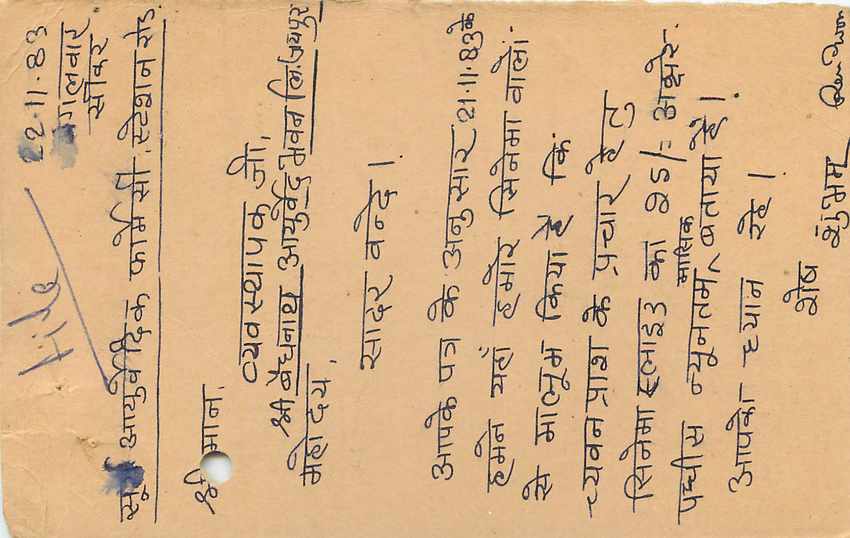 22.11.83
मंगलवार
सीकर
File
आयुर्वेदिक फार्मेसी, स्टेशन रोड.
श्रीमान,
व्यवस्थापक जी,
श्री बैधनाथ आयुर्वेद भवन लि. जयपुर
महोदय,
सादर वन्दे।
आपके पत्र के अनुसार 21.11.83 के
हमने यहाँ हमारे सिनेमा वालो
से मालूम किया है कि
च्यवनप्राश के प्रचार हेतु
सिनेमा स्लाइड का 25/= अक्षरे.
पच्चीस न्यूनतम मासिक बताया है।
आपका ध्यान रहे।
शेष शुभम्